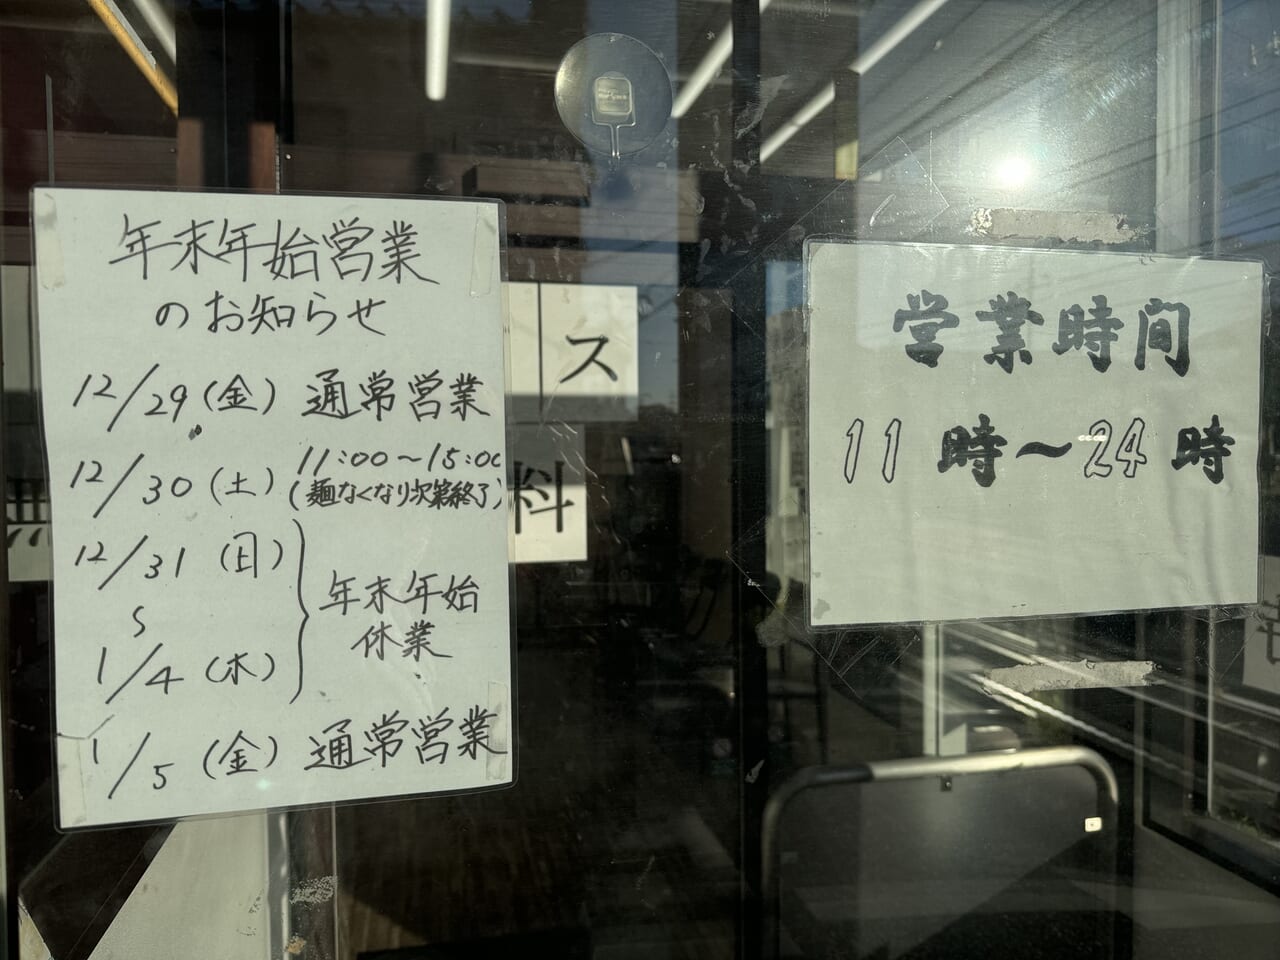 年末年始営業
のお知らせ
12/29(金) 通常営業
12/30(土) 11:00〜15:00
(麺なくなり次第終了)
12/31(日)
〜
1/4(木)
年末年始
休業
1/5(金) 通常営業
ス
料
営業時間
11時〜24時